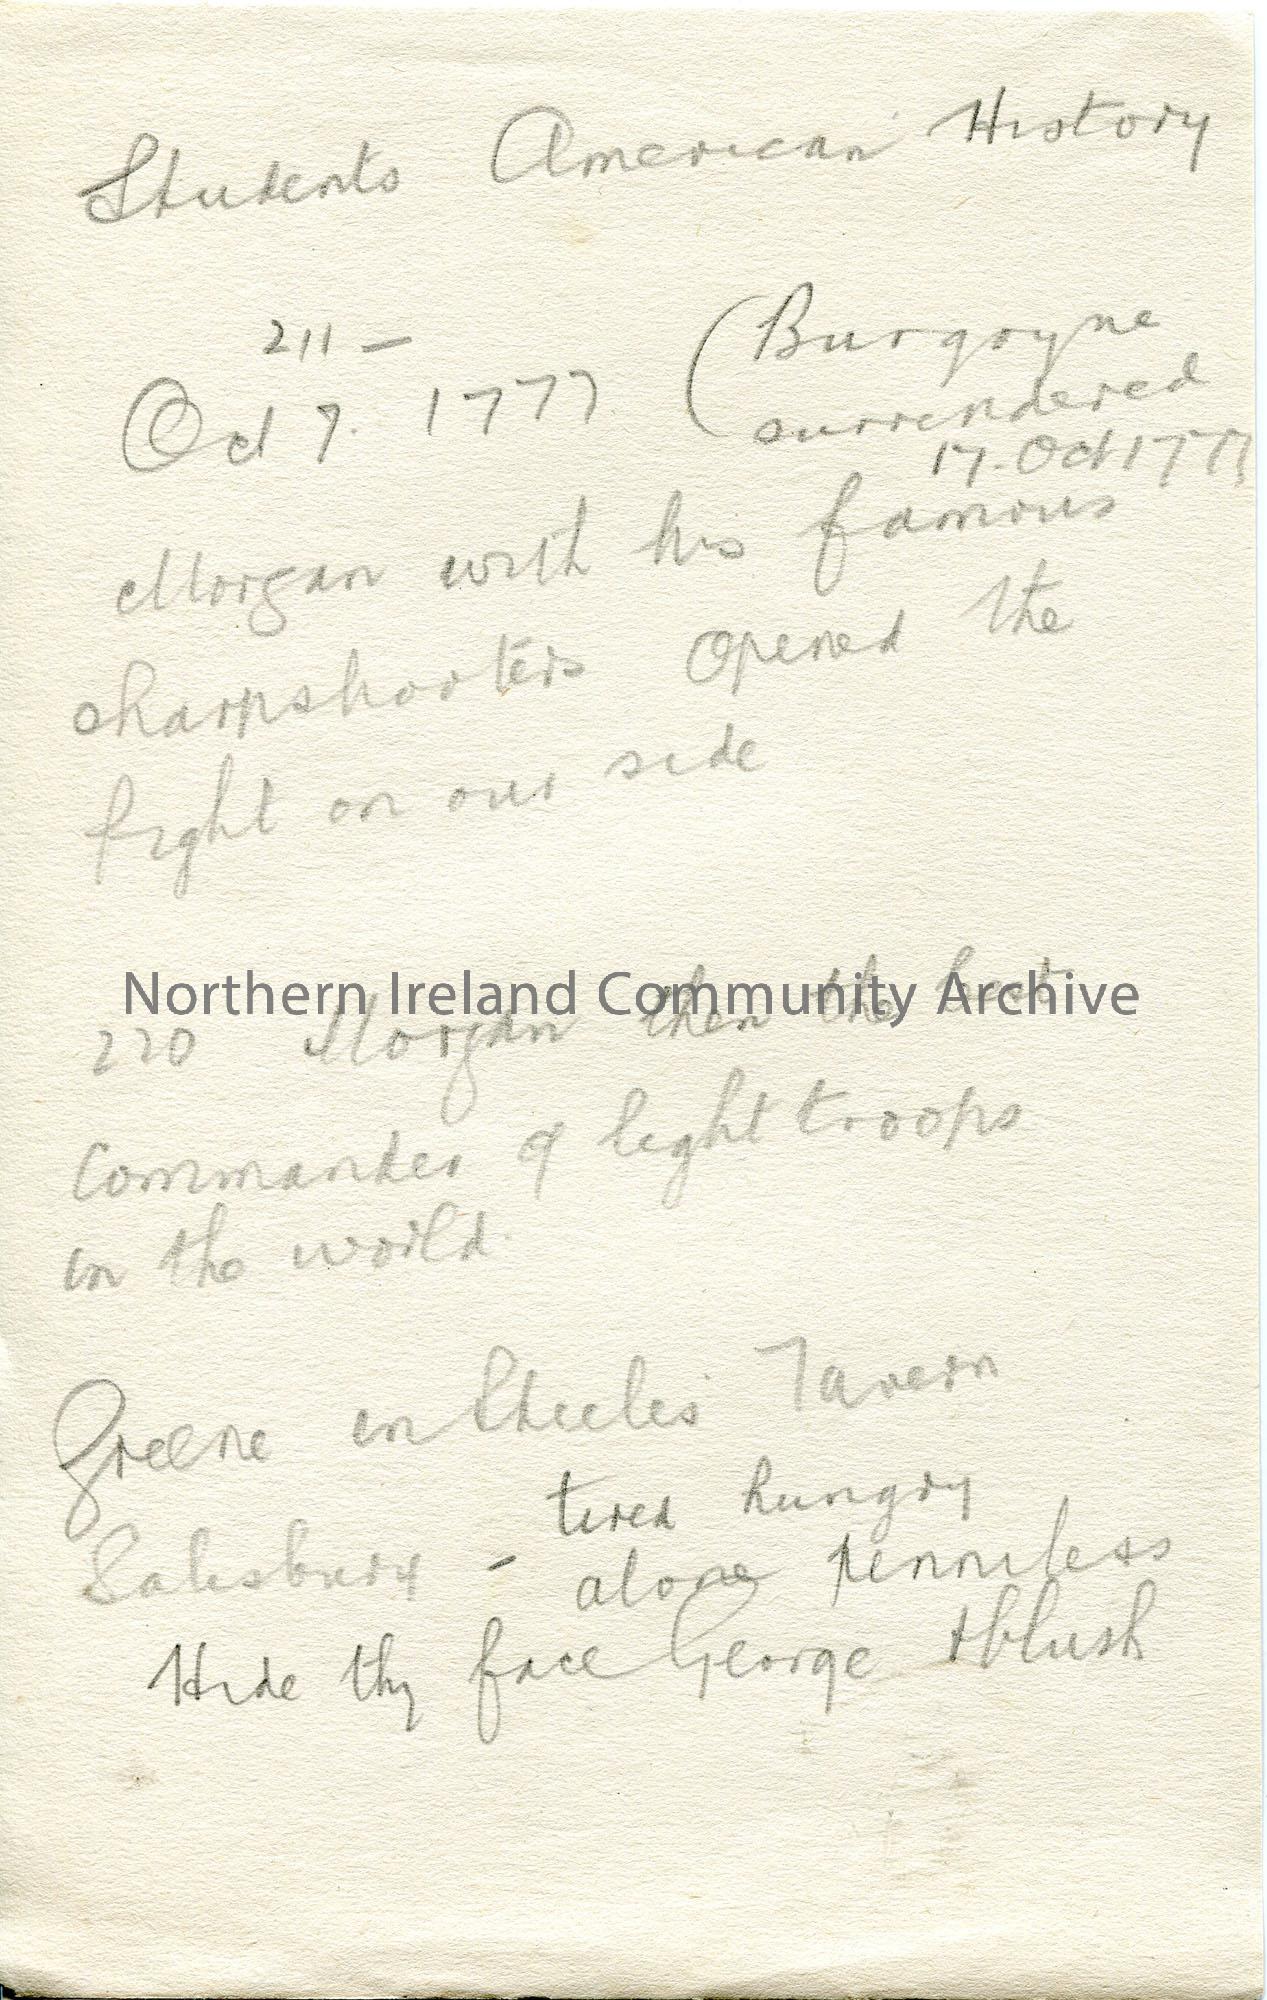 Students American History
211 —
Oct 7. 1777 (Burgoyne
surrendered
17. Oct 1777
Morgan with his famous
sharpshooters opened the
fight on our side
Northern Ireland Community Archive
220 Morgan then the best
Commander of light troops
in the world.
Greene in Steeles Tavern
Salisbury - tired hungry
alone penniless
Hide thy face George & blush